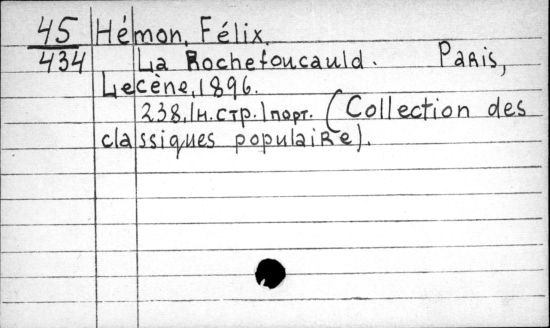 45 Hémon, Félix.
434 La Rochefoucauld. Paris,
Lecène, 1896.
238, 1 н. стр. 1 порт. (Collection des
classiques populaire).